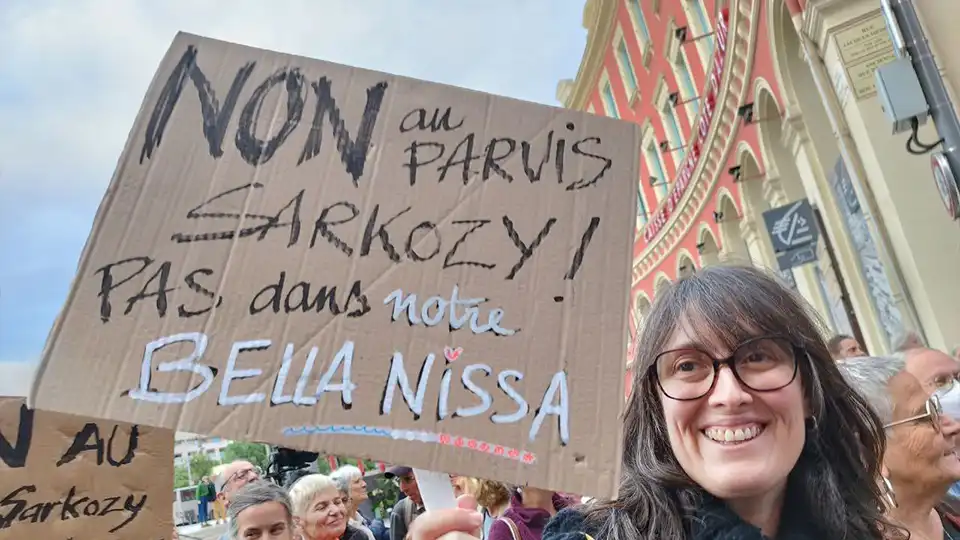 NON au PARVIS
SARKOZY !
PAS dans notre
BELLA NISSA
N AU
Sarkozy